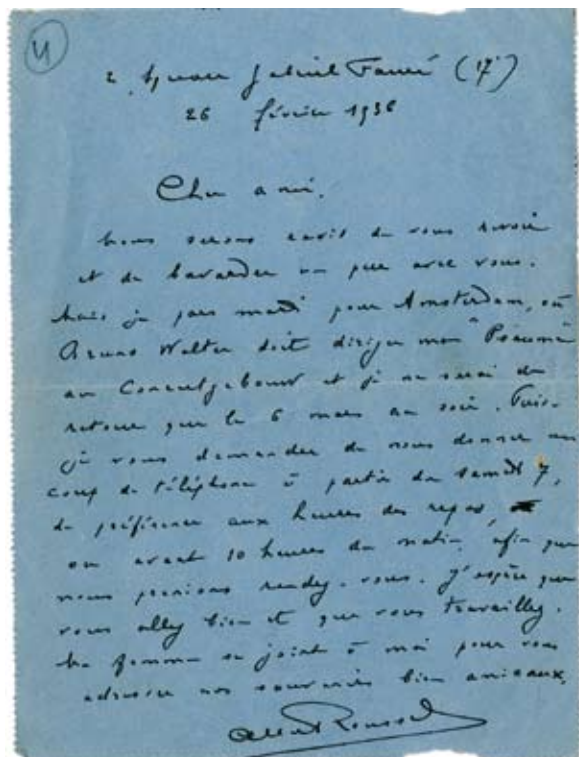 4
2, Square Gabriel Fauré (17)
26 février 1936
Cher ami,
Nous serons ravis de vous revoir
et de bavarder un peu avec vous.
Mais je pars mardi pour Amsterdam, où
Bruno Walter doit diriger mon "Psaume"
au Concertgebouw et je ne serai de
retour que le 6 mars au soir. Puis-
je vous demander de nous donner un
coup de téléphone à partir du samedi 7,
de préférence aux heures des repas,
ou avant 10 heures du matin, afin que
nous prenions rendez-vous. J'espère que
vous allez bien et que vous travaillez.
Ma femme se joint à moi pour vous
adresser nos souvenirs bien amicaux.
Albert Roussel